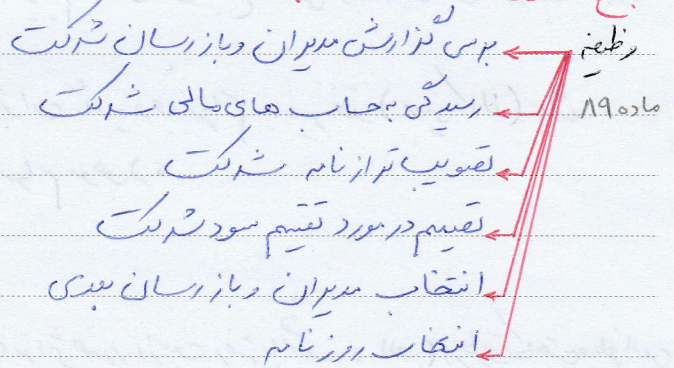 وظیفه
ماده ۸۹
بررسی گزارش مدیران و بازرسان شرکت
رسیدگی به حساب های مالی شرکت
تصویب ترازنامه شرکت
تصمیم در مورد تقسیم سود شرکت
انتخاب مدیران و بازرسان بعدی
انتخاب روزنامه